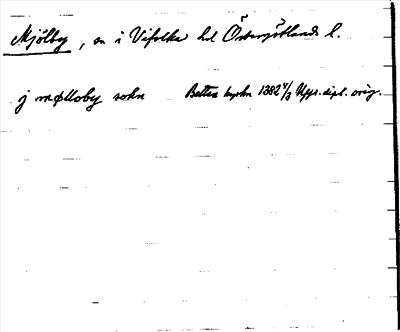 Mjölby, sn i Vifolka hd Östergötlands l.
j mølloby sokn 1382 4/3 Upps. dipl. orig.